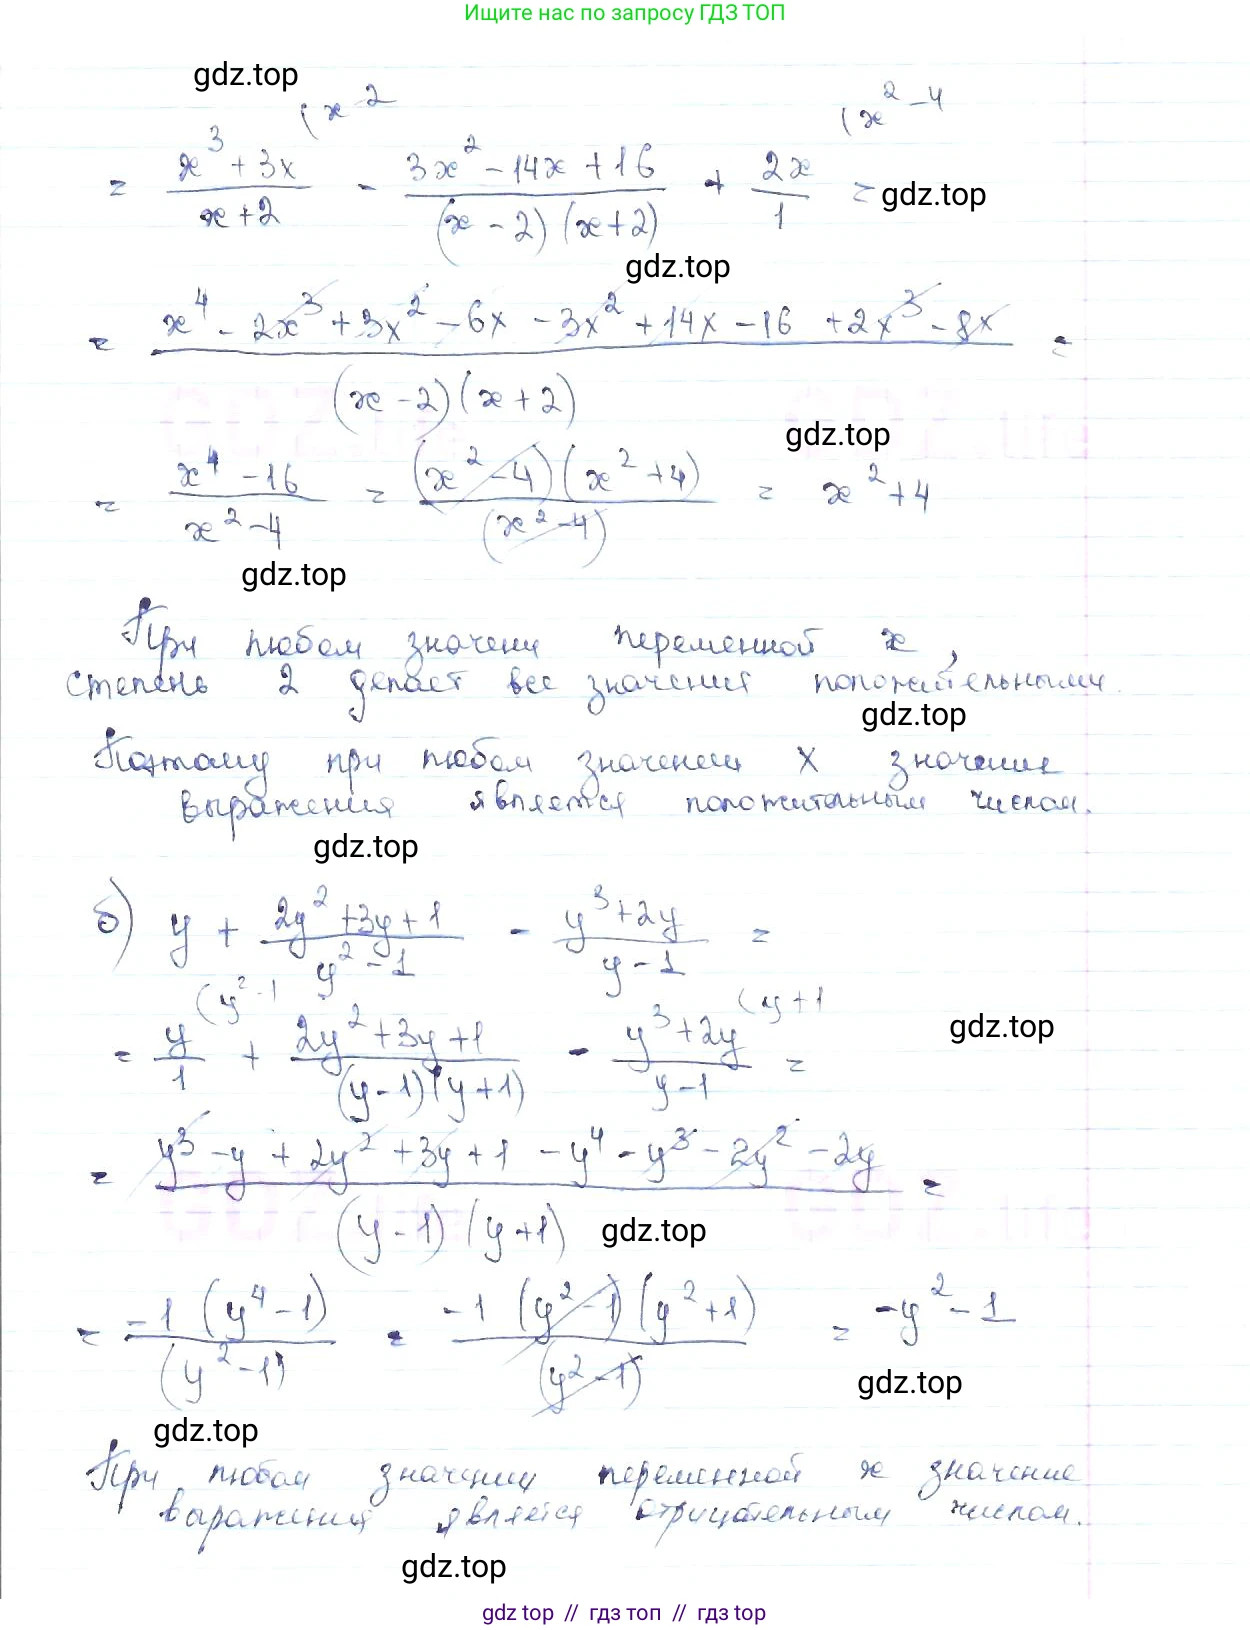 Ищите нас по запросу ГДЗ ТОП
gdz.top
(x-2 (x²-4
= (x³+3x)/(x+2) - (3x²-14x+16)/((x-2)(x+2)) + 2x/1 =
gdz.top
gdz.top
= (x⁴-2x³+3x²-6x-3x²+14x-16+2x³-8x)/((x-2)(x+2)) =
gdz.top
= (x⁴-16)/(x²-4) = ((x²-4)(x²+4))/(x²-4) = x²+4
gdz.top
При любом значени переменной x,
степень 2 делает все значения положительными.
gdz.top
Поэтому при любом значении x значение
выражения является положительным числом.
gdz.top
б) y + (2y²+3y+1)/(y²-1) - (y³+2y)/(y-1) =
(y²-1 (y+1
= y/1 + (2y²+3y+1)/((y-1)(y+1)) - (y³+2y)/(y-1) =
gdz.top
= (y³-y+2y²+3y+1-y⁴-y³-2y²-2y)/((y-1)(y+1)) =
gdz.top
= -1(y⁴-1)/(y²-1) = -1(y²-1)(y²+1)/(y²-1) = -y²-1
gdz.top
gdz.top
При любом значении переменной x значение
выражения является отрицательным числом.
gdz.top
gdz top // гдз топ // гдз top